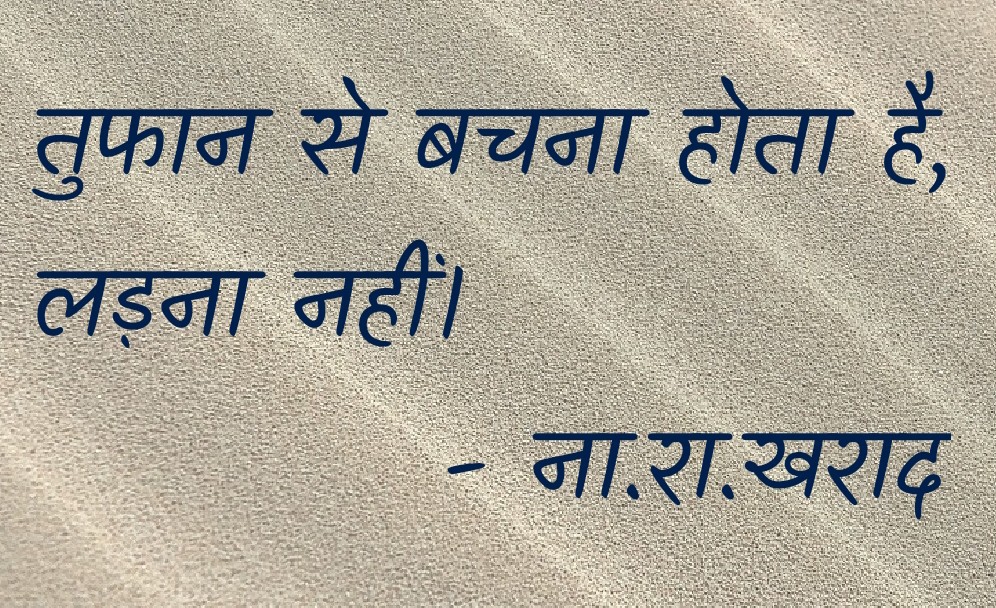 तुफान से बचना होता है,
लड़ना नहीं।
- ना.रा.खराद